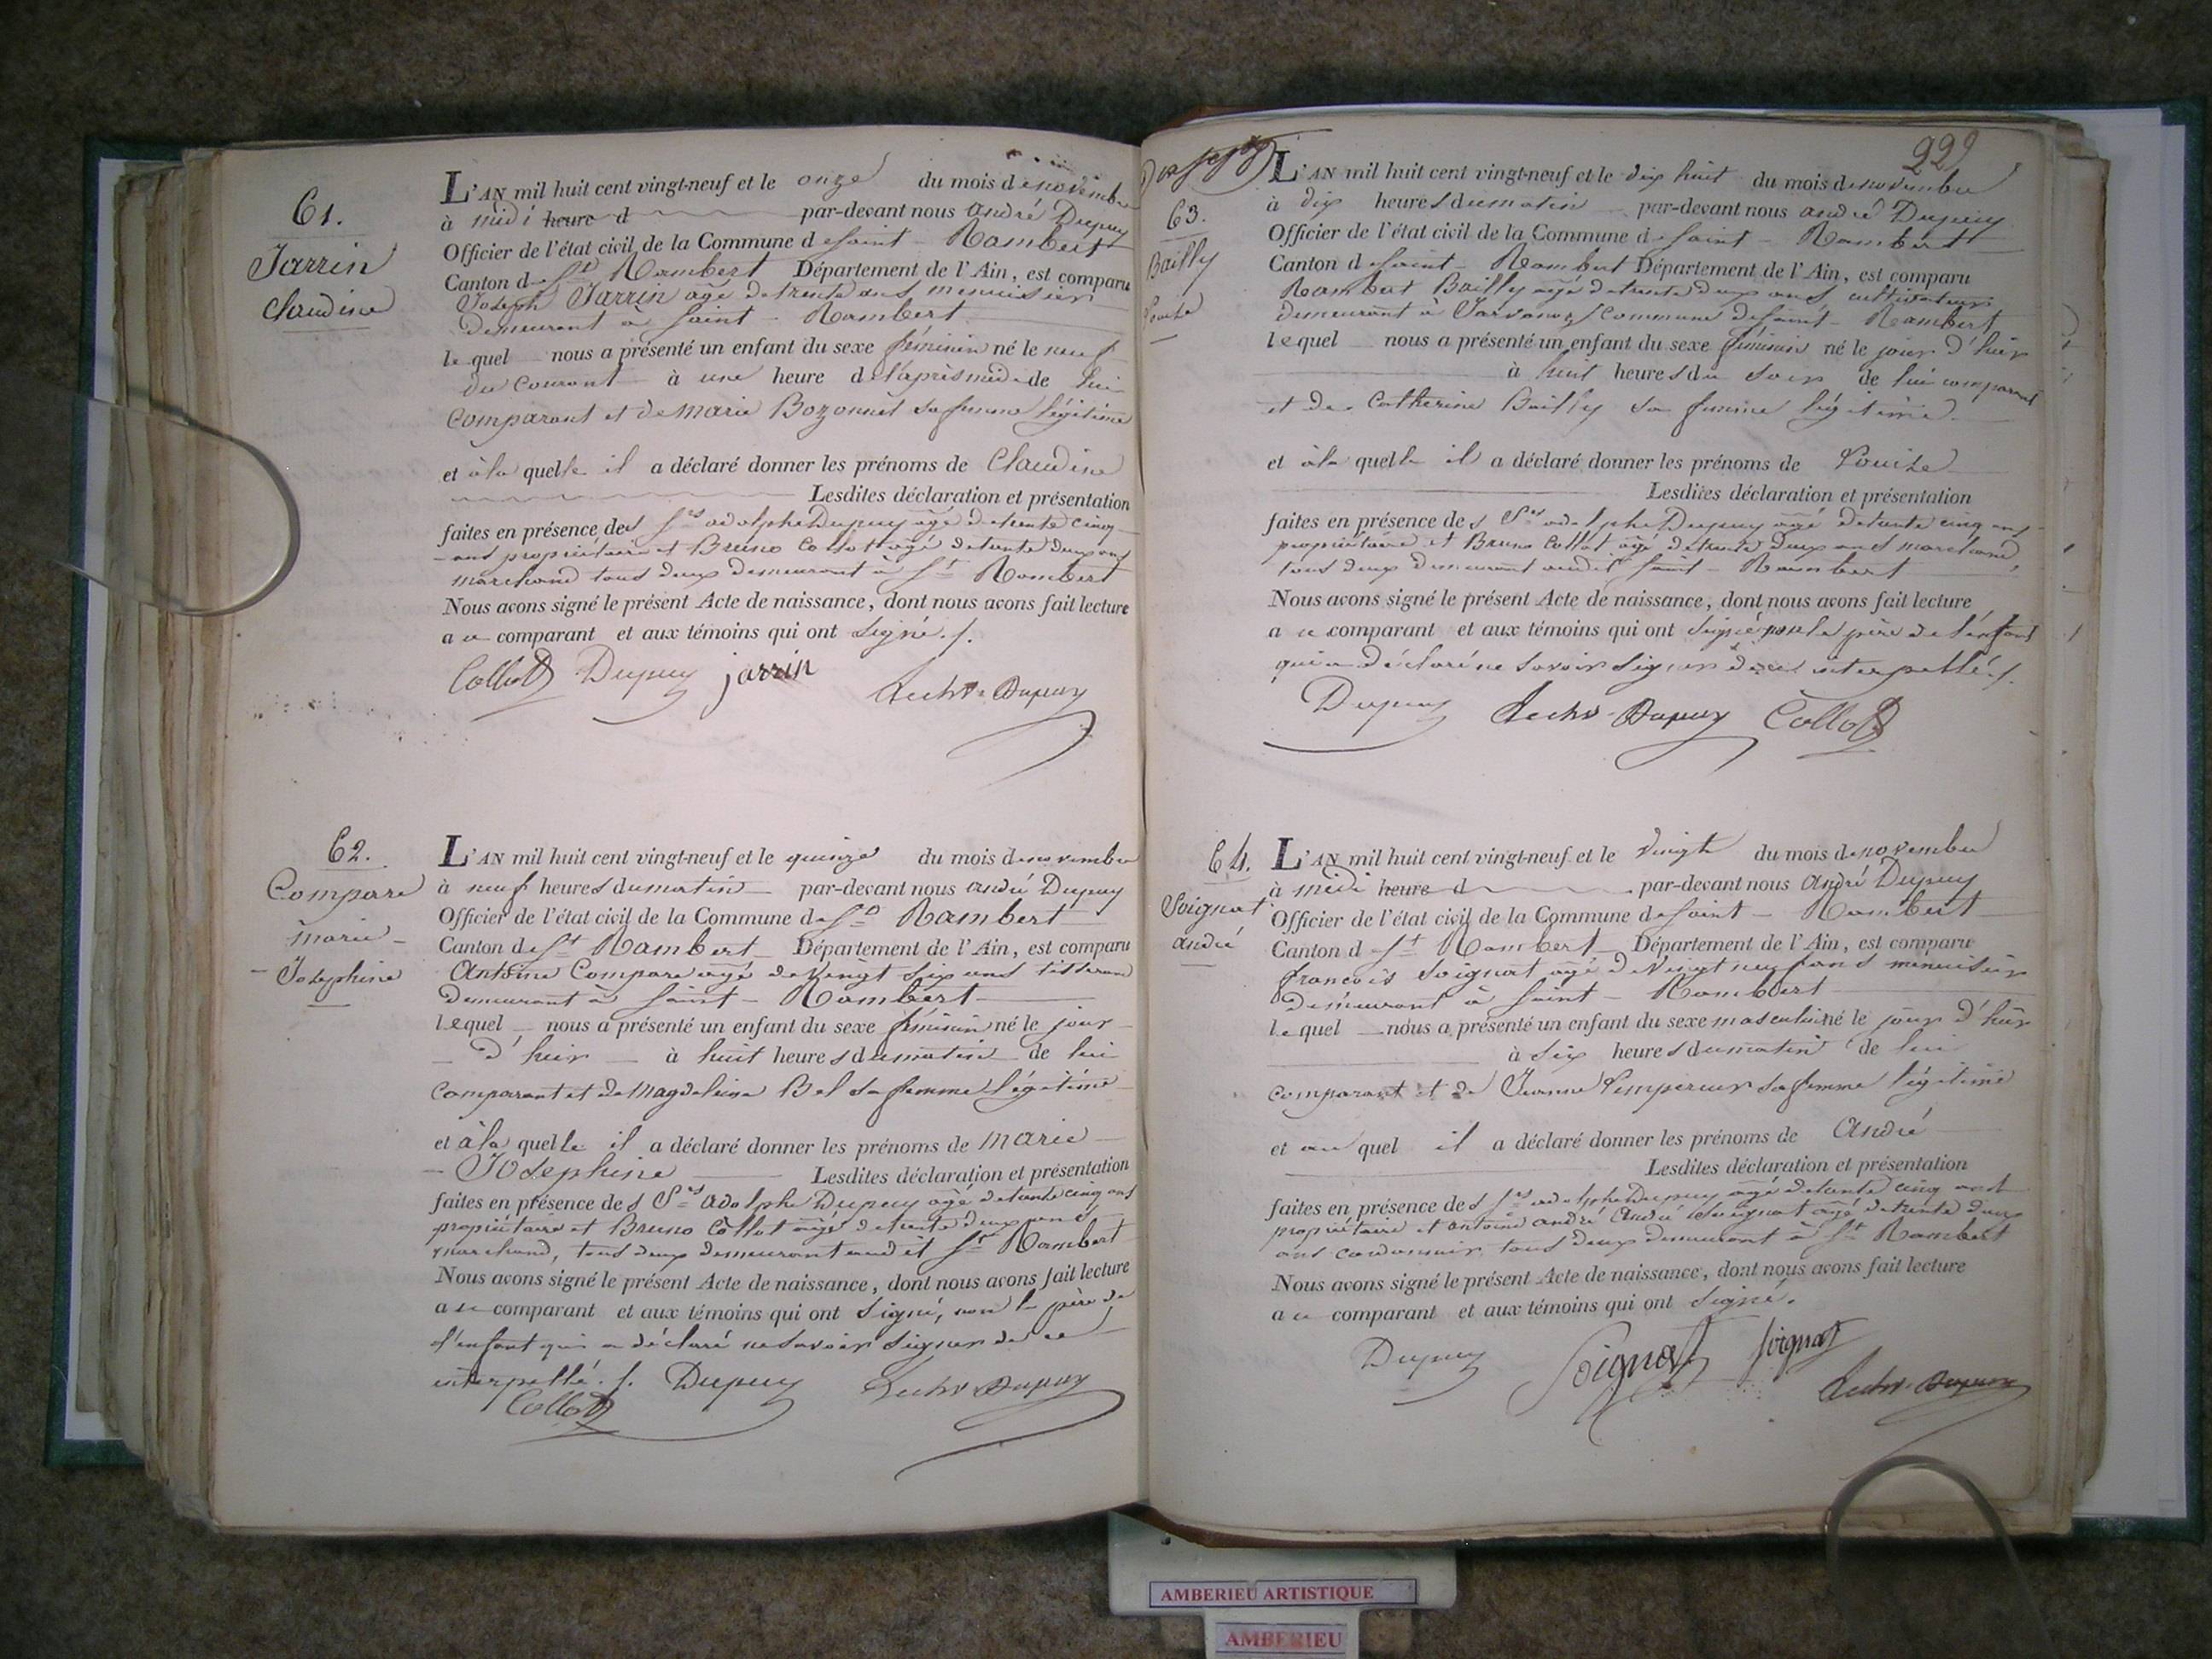 61.
Jarrin
Claudine
L'AN mil huit cent vingt-neuf et le onze du mois de novembre
à midi heure d par-devant nous andré Dupuy
Officier de l'état civil de la Commune de Saint-Rambert
Canton de St Rambert Département de l'Ain, est comparu
Joseph Jarrin agé de trente ans menuisier
demeurant à Saint-Rambert
lequel nous a présenté un enfant du sexe féminin né le neuf
du Courant à une heure de l'après midi de lui
Comparant et de Marie Bozonnet sa femme légitime
et à la quelle il a déclaré donner les prénoms de Claudine
Lesdites déclaration et présentation
faites en présence des Srs adolphe Dupuy agé de trente cinq
ans propriétaire et Bruno Collot agé de trente deux ans
marchand tous deux demeurant à St Rambert
Nous avons signé le présent Acte de naissance, dont nous avons fait lecture
au comparant et aux témoins qui ont signé.
Collot Dupuy jarrin
Dupuy
62.
Compare
marie-
Josephine
L'AN mil huit cent vingt-neuf et le quinze du mois de novembre
à neuf heures du matin par-devant nous andré Dupuy
Officier de l'état civil de la Commune de St Rambert
Canton de St Rambert Département de l'Ain, est comparu
Antoine Compare agé de Vingt six ans tisserand
demeurant à Saint-Rambert
lequel nous a présenté un enfant du sexe féminin né le jour
d'huir à huit heures du matin de lui
comparant et de Magdeleine Bel sa femme légitime
et à la quelle il a déclaré donner les prénoms de marie
-Josephine Lesdites déclaration et présentation
faites en présence des Srs adolphe Dupuy agé de trente cinq ans
propriétaire et Bruno Collot agé de trente deux ans
marchand, tous deux demeurant audit St Rambert
Nous avons signé le présent Acte de naissance, dont nous avons fait lecture
au comparant et aux témoins qui ont signé, non le père de
l'enfant qui a déclaré ne savoir signer de ce
interpellé. Dupuy Dupuy
Collot
229
63.
Bailly
Louise
L'AN mil huit cent vingt-neuf et le dix huit du mois de novembre
à dix heures du matin par-devant nous andré Dupuy
Officier de l'état civil de la Commune de Saint-Rambert
Canton de Saint-Rambert Département de l'Ain, est comparu
Rambert Bailly agé de trente deux ans cultivateur
demeurant à commune de Saint-Rambert
lequel nous a présenté un enfant du sexe féminin né le jour d'hier
à huit heures du soir de lui comparant
et de Catherine Bailly sa femme légitime
et à la quelle il a déclaré donner les prénoms de Louise
Lesdites déclaration et présentation
faites en présence des Srs adolphe Dupuy agé de trente cinq ans
propriétaire et Bruno Collot agé de trente deux ans marchand,
tous deux demeurant audit Saint-Rambert
Nous avons signé le présent Acte de naissance, dont nous avons fait lecture
au comparant et aux témoins qui ont signé non le père de l'enfant
qui a déclaré ne savoir signer de ce interpellé.
Dupuy Dupuy Collot
64.
Soignat
andré
L'AN mil huit cent vingt-neuf et le vingt du mois de novembre
à midi heure d par-devant nous André Dupuy
Officier de l'état civil de la Commune de Saint-Rambert
Canton de St Rambert Département de l'Ain, est comparu
François Soignat agé de Vingt neuf ans menuisier
demeurant à Saint-Rambert
lequel nous a présenté un enfant du sexe masculin né le jour d'huir
à six heures du matin de lui
comparant et de Jeanne Lempereur sa femme légitime
et au quel il a déclaré donner les prénoms de André
Lesdites déclaration et présentation
faites en présence des Srs adolphe Dupuy agé de trente cinq ans
propriétaire et antoine andré Soignat agé de trente deux
ans cordonnier tous deux demeurant à St Rambert
Nous avons signé le présent Acte de naissance, dont nous avons fait lecture
au comparant et aux témoins qui ont signé.
Dupuy Soignat Soignat
Dupuy
AMBERIEU ARTISTIQUE
AMBERIEU